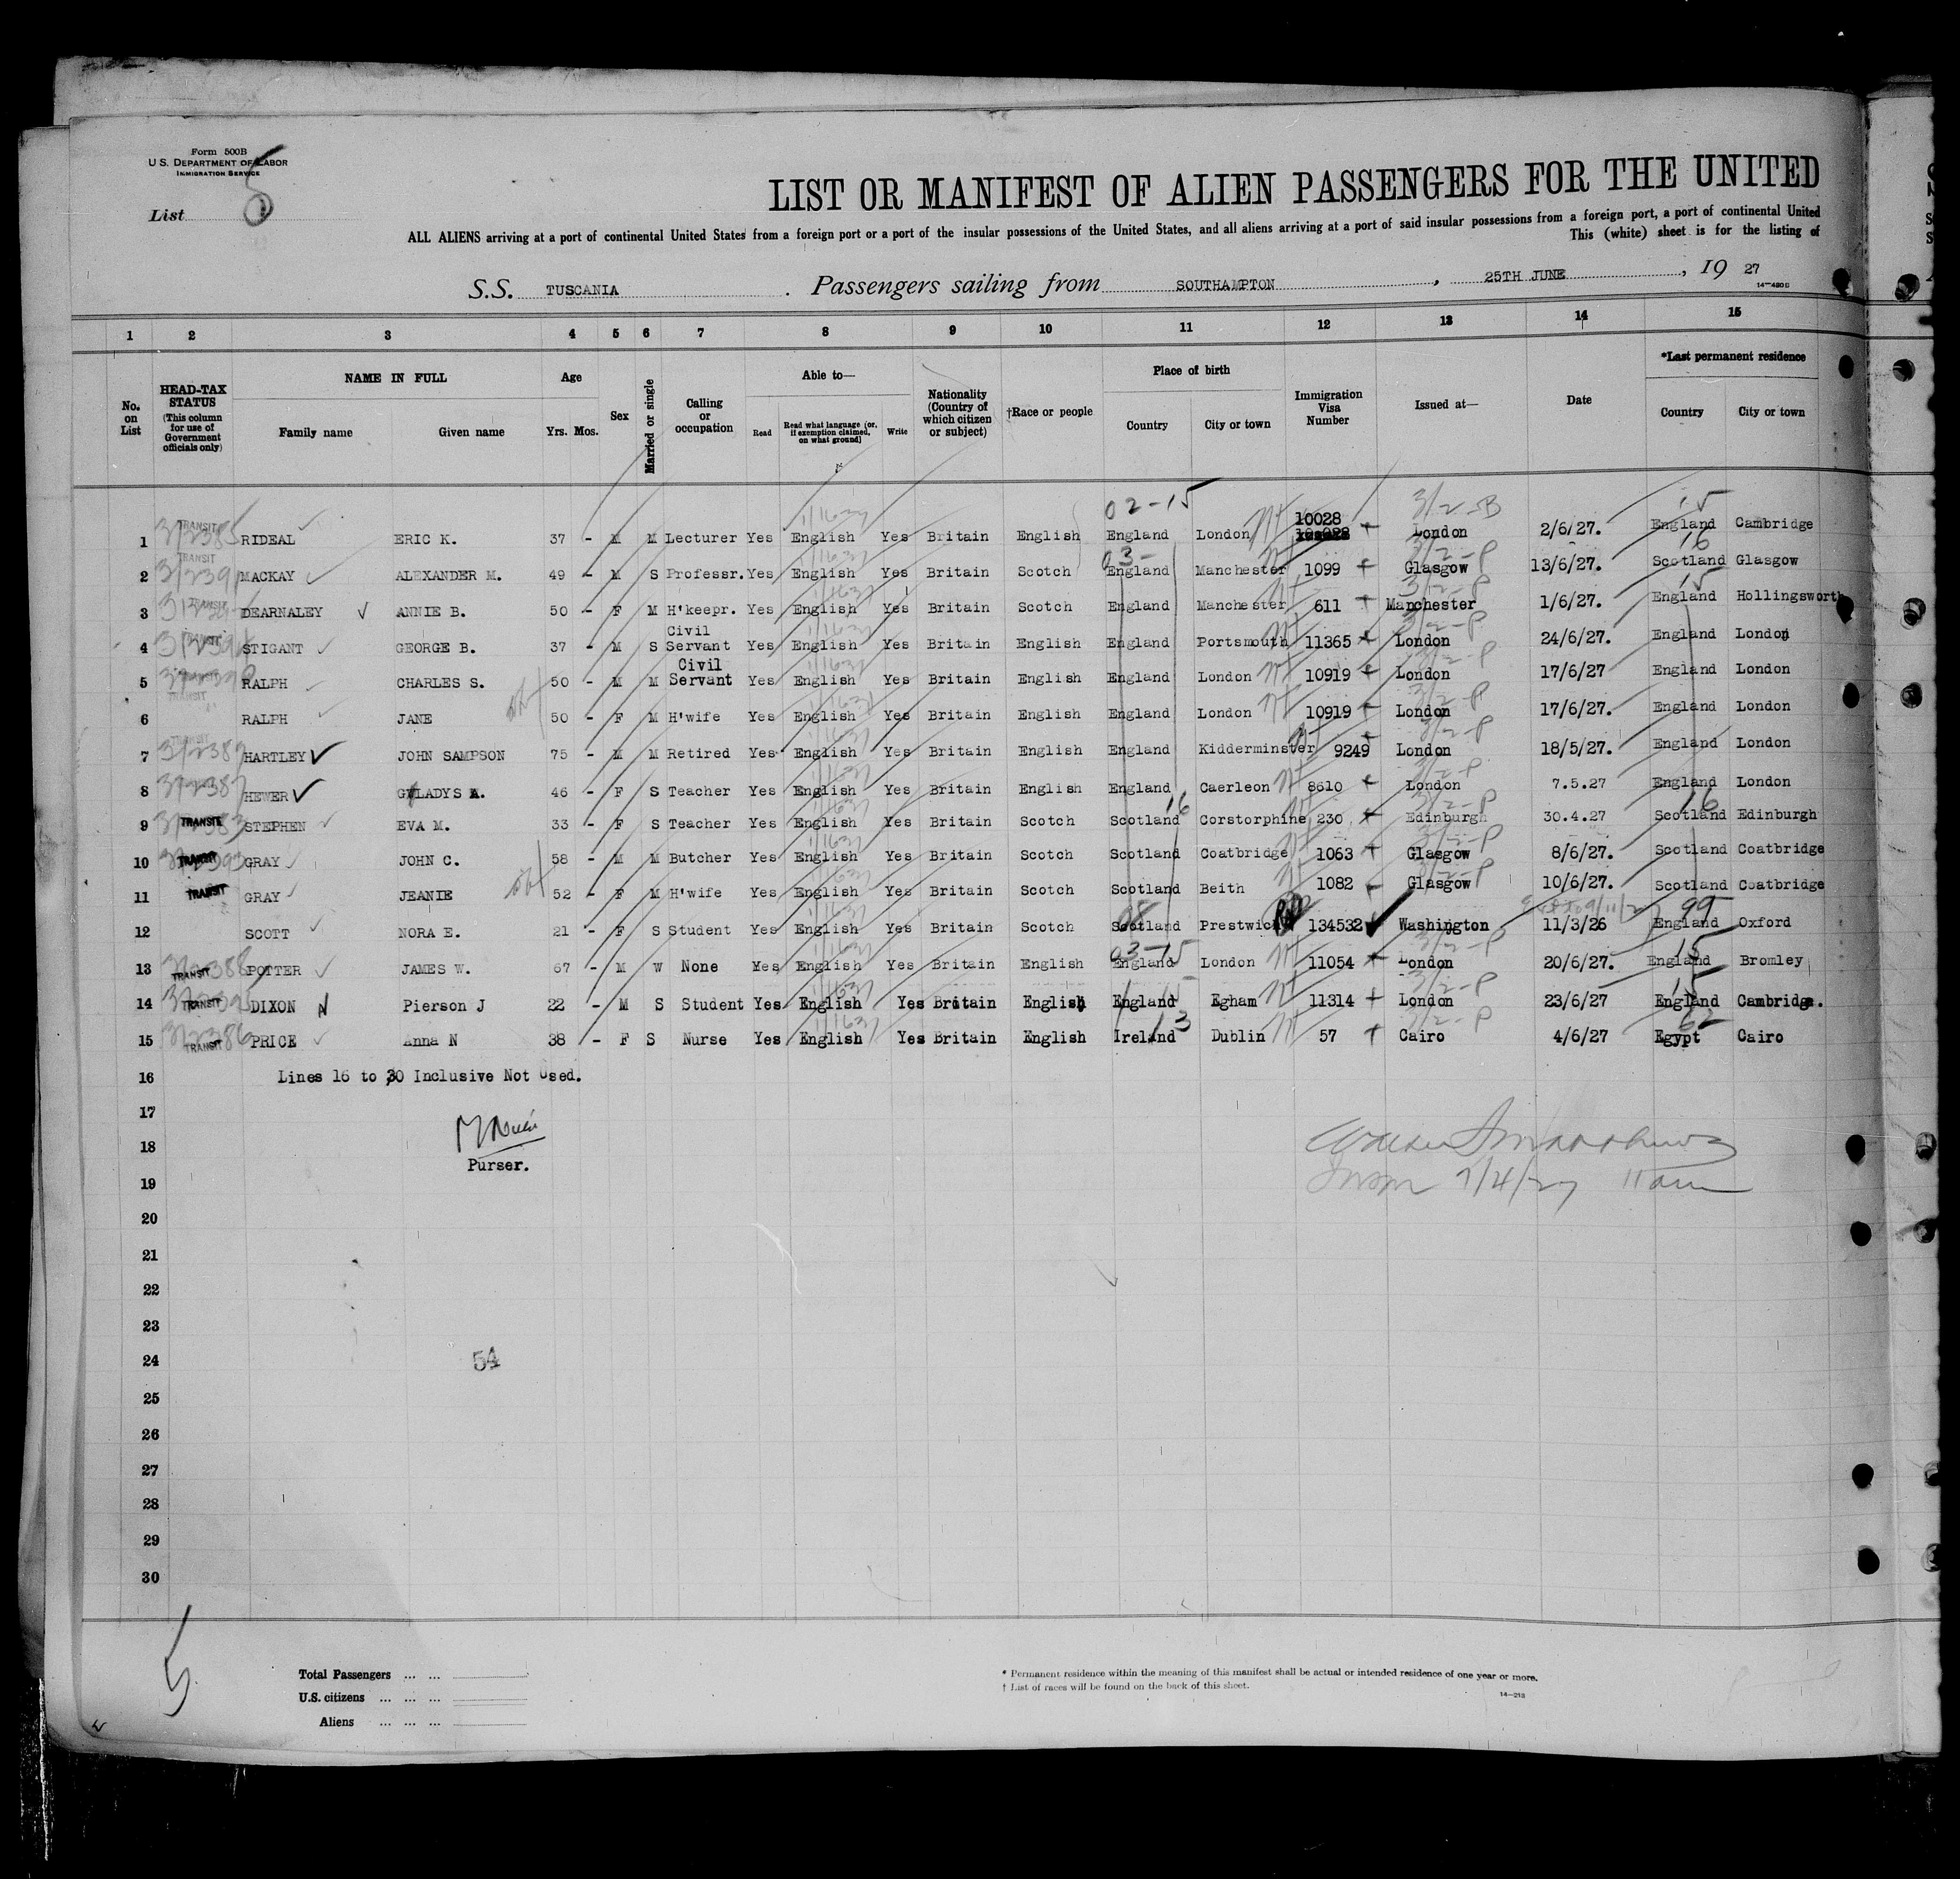 Form 500B
U.S. DEPARTMENT OF LABOR
IMMIGRATION SERVICE
List 5
LIST OR MANIFEST OF ALIEN PASSENGERS FOR THE UNITED
ALL ALIENS arriving at a port of continental United States from a foreign port or a port of the insular possessions of the United States, and all aliens arriving at a port of said insular possessions from a foreign port, a port of continental United
This (white) sheet is for the listing of
S.S. TUSCANIA . Passengers sailing from SOUTHAMPTON , 25TH JUNE , 19 27
1 2 3 4 5 6 7 8 9 10 11 12 13 14 15
No. on List
HEAD-TAX STATUS (This column for use of Government officials only)
NAME IN FULL Family name Given name
Age Yrs. Mos.
Sex
Married or single
Calling or occupation
Able to— Read Read what language (or, if exemption claimed, on what ground) Write
Nationality (Country of which citizen or subject)
†Race or people
Place of birth Country City or town
Immigration Visa Number
Issued at—
Date
*Last permanent residence Country City or town
02-15 15
1 TRANSIT RIDEAL ERIC K. 37 - M M Lecturer Yes English Yes Britain English England London 10028 London 2/6/27. England Cambridge
2 TRANSIT MACKAY ALEXANDER M. 49 - M S Professr. Yes English Yes Britain Scotch England Manchester 1099 Glasgow 13/6/27. Scotland Glasgow
3 TRANSIT DEARNALEY ANNIE B. 50 - F M H'keepr. Yes English Yes Britain Scotch England Manchester 611 Manchester 1/6/27. England Hollingsworth
4 TRANSIT STIGANT GEORGE B. 37 - M S Civil Servant Yes English Yes Britain English England Portsmouth 11365 London 24/6/27. England London
5 TRANSIT RALPH CHARLES S. 50 - M M Civil Servant Yes English Yes Britain English England London 10919 London 17/6/27 England London
6 TRANSIT RALPH JANE 50 - F M H'wife Yes English Yes Britain English England London 10919 London 17/6/27. England London
7 TRANSIT HARTLEY JOHN SAMPSON 75 - M M Retired Yes English Yes Britain English England Kidderminster 9249 London 18/5/27. England London
8 HEWER GLADYS A. 46 - F S Teacher Yes English Yes Britain English England Caerleon 8610 London 7.5.27 England London
9 TRANSIT STEPHEN EVA M. 33 - F S Teacher Yes English Yes Britain Scotch Scotland Corstorphine 230 Edinburgh 30.4.27 Scotland Edinburgh
10 TRANSIT GRAY JOHN C. 58 - M M Butcher Yes English Yes Britain Scotch Scotland Coatbridge 1063 Glasgow 8/6/27. Scotland Coatbridge
11 TRANSIT GRAY JEANIE 52 - F M H'wife Yes English Yes Britain Scotch Scotland Beith 1082 Glasgow 10/6/27. Scotland Coatbridge
12 SCOTT NORA E. 21 - F S Student Yes English Yes Britain Scotch Scotland Prestwick 134532 Washington 11/3/26 England Oxford
13 TRANSIT POTTER JAMES W. 67 - M W None Yes English Yes Britain English England London 11054 London 20/6/27. England Bromley
14 TRANSIT DIXON Pierson J 22 - M S Student Yes English Yes Britain English England Egham 11314 London 23/6/27 England Cambridge.
15 TRANSIT PRICE Anna N 38 - F S Nurse Yes English Yes Britain English Ireland Dublin 57 Cairo 4/6/27 Egypt Cairo
16 Lines 16 to 30 Inclusive Not Used.
17
18
Purser.
19 7/4/27 11 am
20
21
22
23
24 54
25
26
27
28
29
30
5
Total Passengers ... ...
U.S. citizens ... ... ...
Aliens ... ... ...
* Permanent residence within the meaning of this manifest shall be actual or intended residence of one year or more.
† List of races will be found on the back of this sheet.
14—218